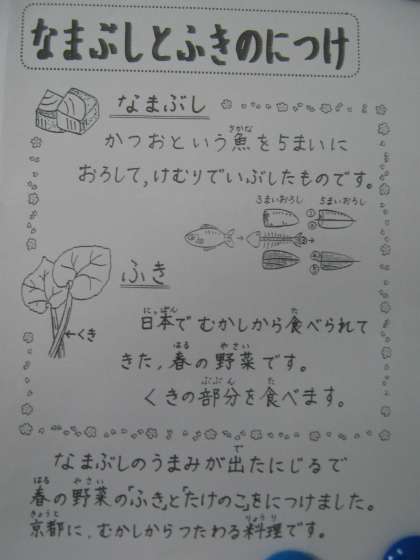 なまぶしとふきのにつけ
なまぶし
かつおという魚を5まいに
さかな
おろして,けむりでいぶしたものです。
3まいおろし
5まいおろし
ふき
←くき
日本でむかしから食べられて
にっぽん
た
きた,春の野菜です。
はる
やさい
くきの部分を食べます。
ぶぶん
た
なまぶしのうまみが出たにじるで
で
春の野菜の「ふき」と「たけのこ」をにつけました。
はる
やさい
京都に,むかしからつたわる料理です。
きょうと
りょうり